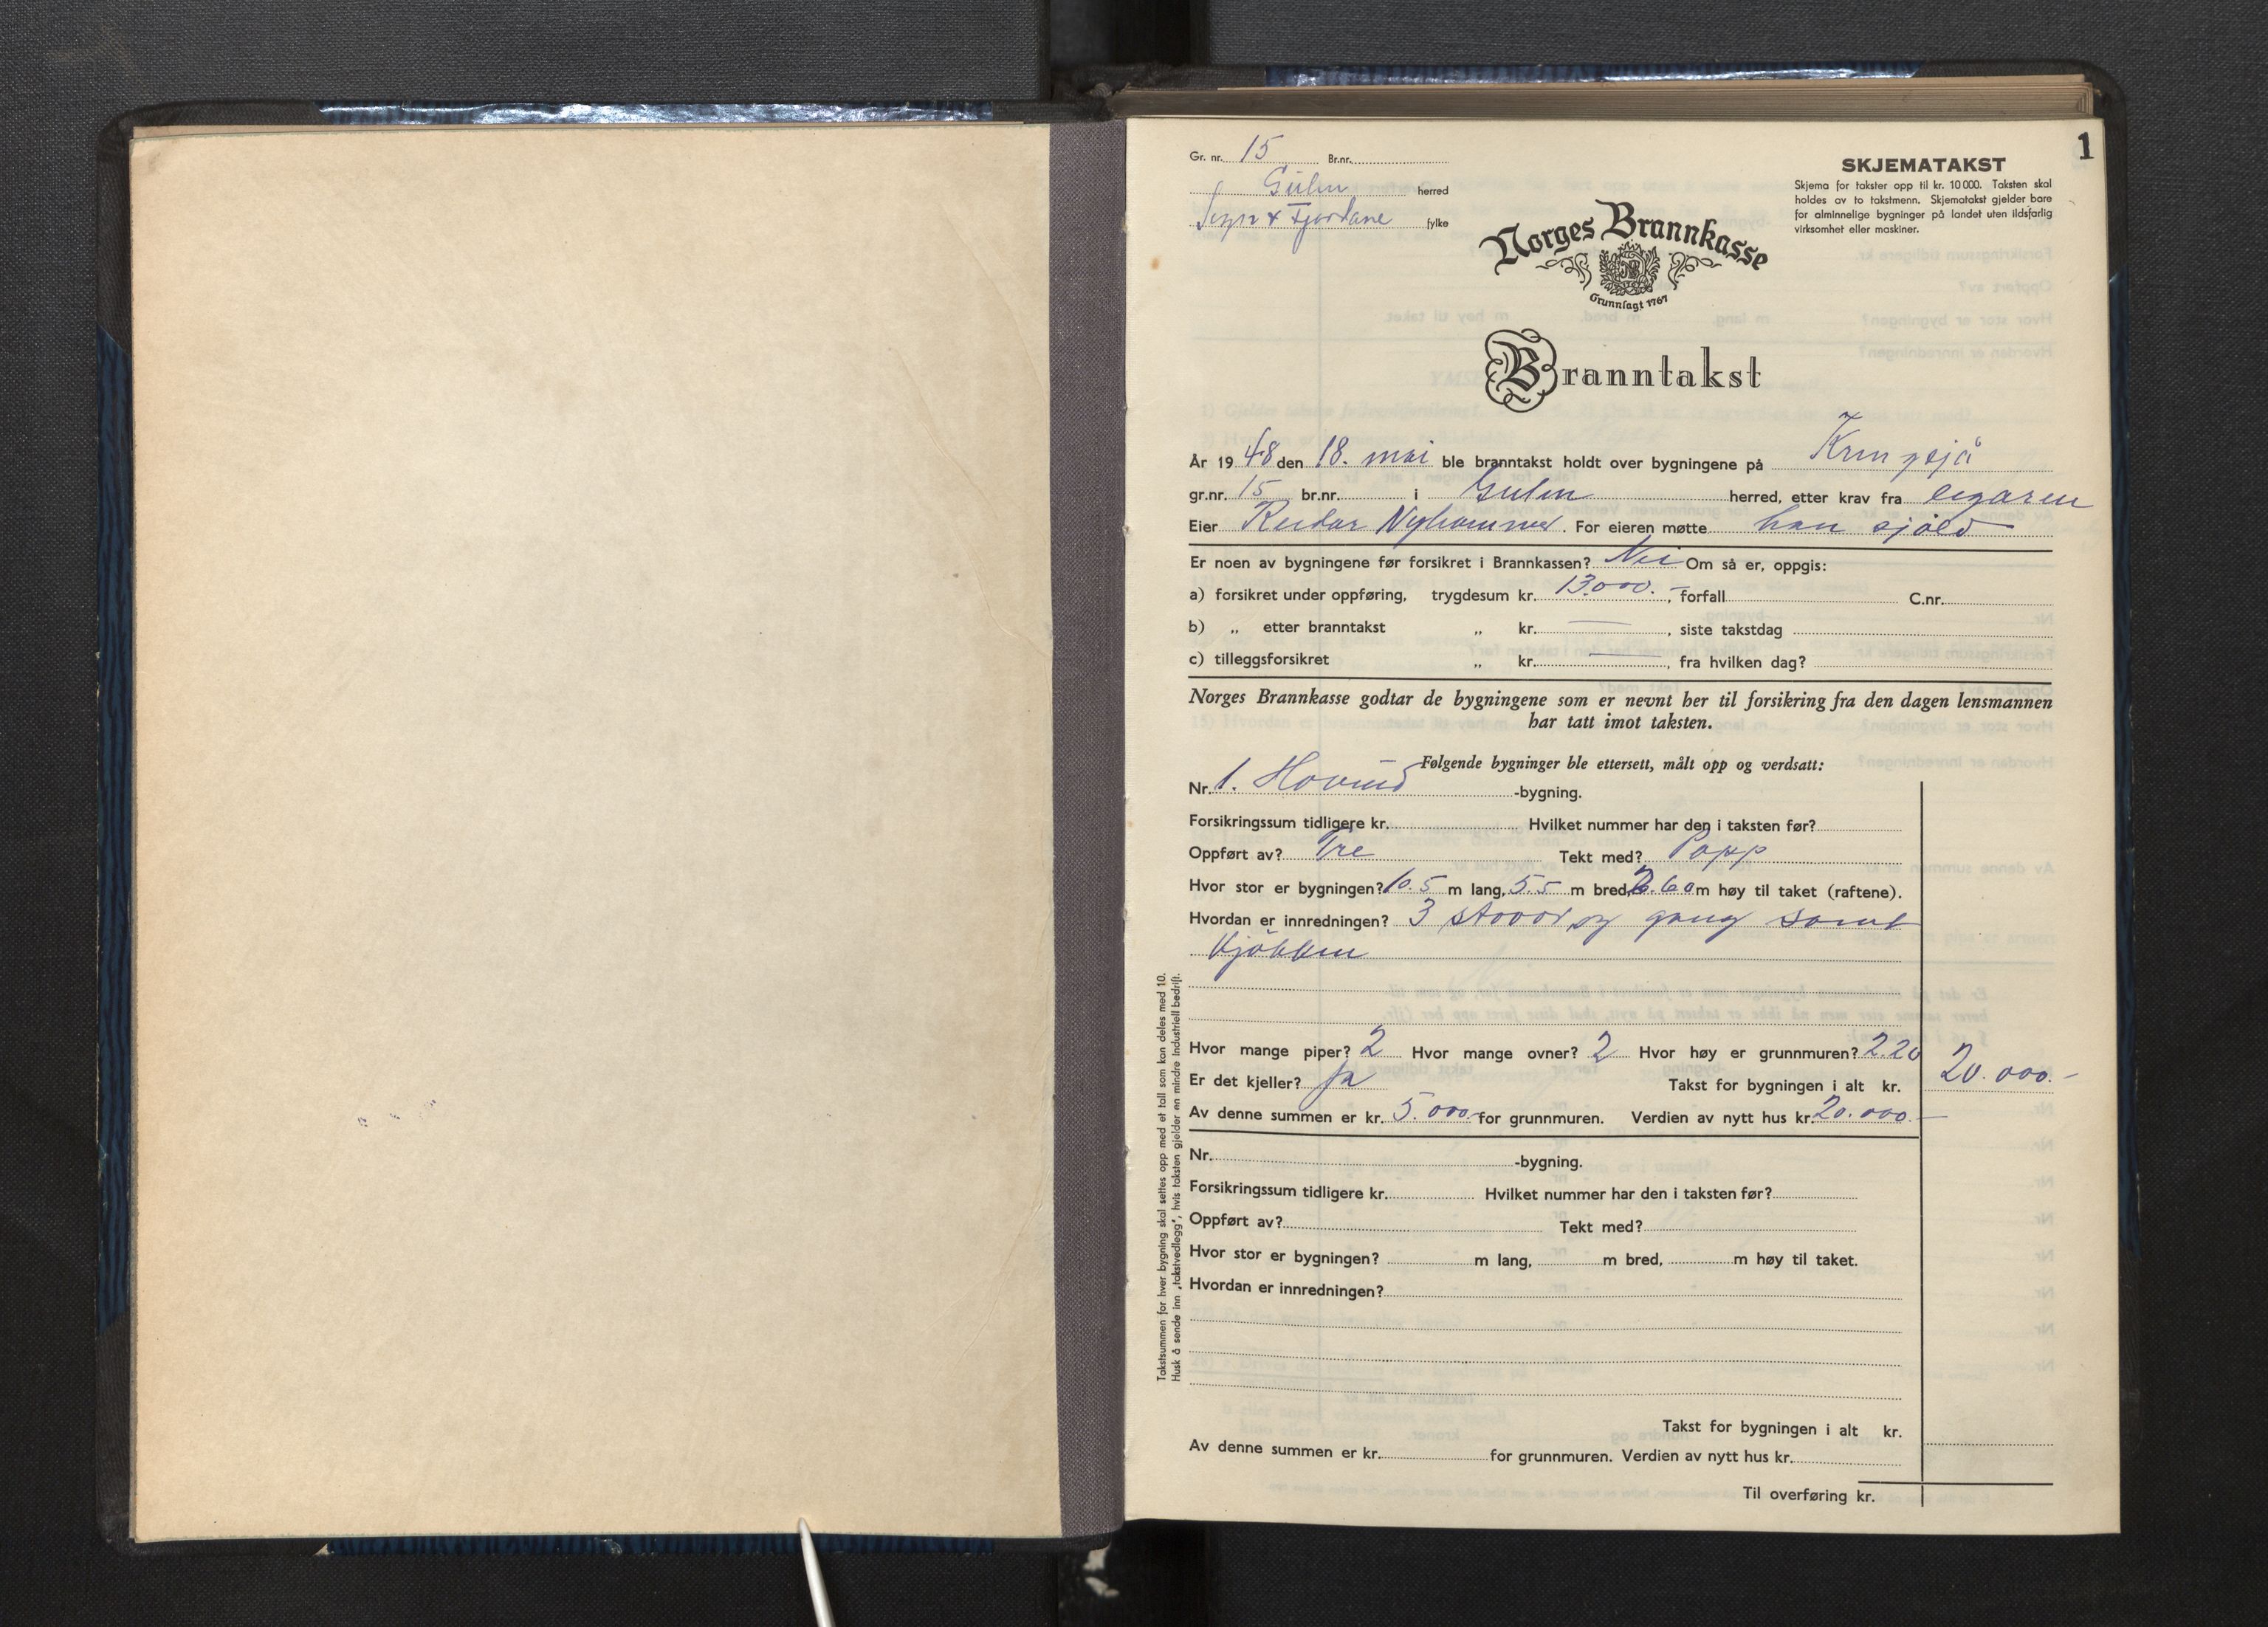 1
Gr. nr. 15 Br.nr.
Gulen herred
Sogn & Fjordane fylke
SKJEMATAKST
Skjema for takster opp til kr. 10 000. Taksten skal
holdes av to takstmenn. Skjematakst gjelder bare
for alminnelige bygninger på landet uten ildsfarlig
virksomhet eller maskiner.
Norges Brannkasse
Grunnlagt 1767
Branntakst
År 1948 den 18. mai ble branntakst holdt over bygningene på Kringsjå
gr.nr. 15 br.nr. i Gulen herred, etter krav fra eigaren
Eier Reidar Nyhammer. For eieren møtte han sjølv
Er noen av bygningene før forsikret i Brannkassen? Nei Om så er, oppgis:
a) forsikret under oppføring, trygdesum kr. 13.000.-, forfall C.nr.
b) „ etter branntakst „ kr. —, siste takstdag
c) tilleggsforsikret „ kr. —, fra hvilken dag?
Norges Brannkasse godtar de bygningene som er nevnt her til forsikring fra den dagen lensmannen
har tatt imot taksten.
Følgende bygninger ble ettersett, målt opp og verdsatt:
Nr. 1. -bygning.
Forsikringssum tidligere kr. Hvilket nummer har den i taksten før?
Oppført av? Tre Tekt med? Papp
Hvor stor er bygningen? 10.5 m lang, 5.5 m bred, 2.60 m høy til taket (raftene).
Hvordan er innredningen? 3 og gang samt
kjökken
Hvor mange piper? 2 Hvor mange ovner? 2 Hvor høy er grunnmuren? 2.20
Er det kjeller? Ja Takst for bygningen i alt kr. 20.000.-
Av denne summen er kr. 5.000.- for grunnmuren. Verdien av nytt hus kr. 20.000.-
Nr. -bygning.
Forsikringssum tidligere kr. Hvilket nummer har den i taksten før?
Oppført av? Tekt med?
Hvor stor er bygningen? m lang, m bred, m høy til taket.
Hvordan er innredningen?
Takst for bygningen i alt kr.
Av denne summen er kr. for grunnmuren. Verdien av nytt hus kr.
Til overføring kr.
Takstsummen for hver bygning skal settes opp med et tall som kan deles med 10.
Husk å sende inn „takstvedlegg", hvis taksten gjelder en mindre industriell bedrift.